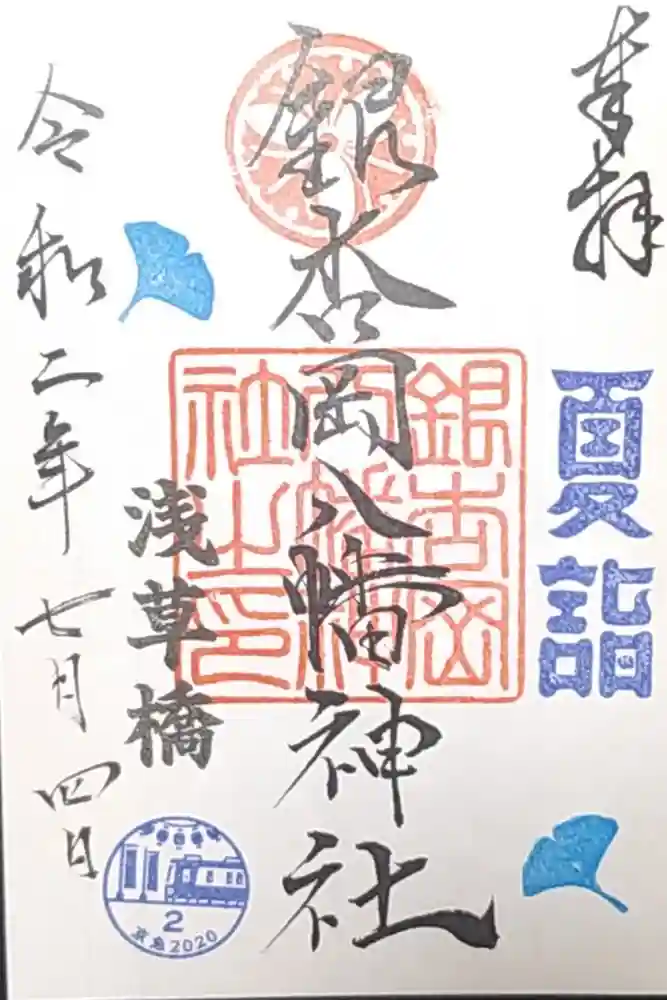 奉拝
夏詣
銀杏岡八幡神社
銀杏岡八幡神社之印
浅草橋
令和二年七月四日
2
2020